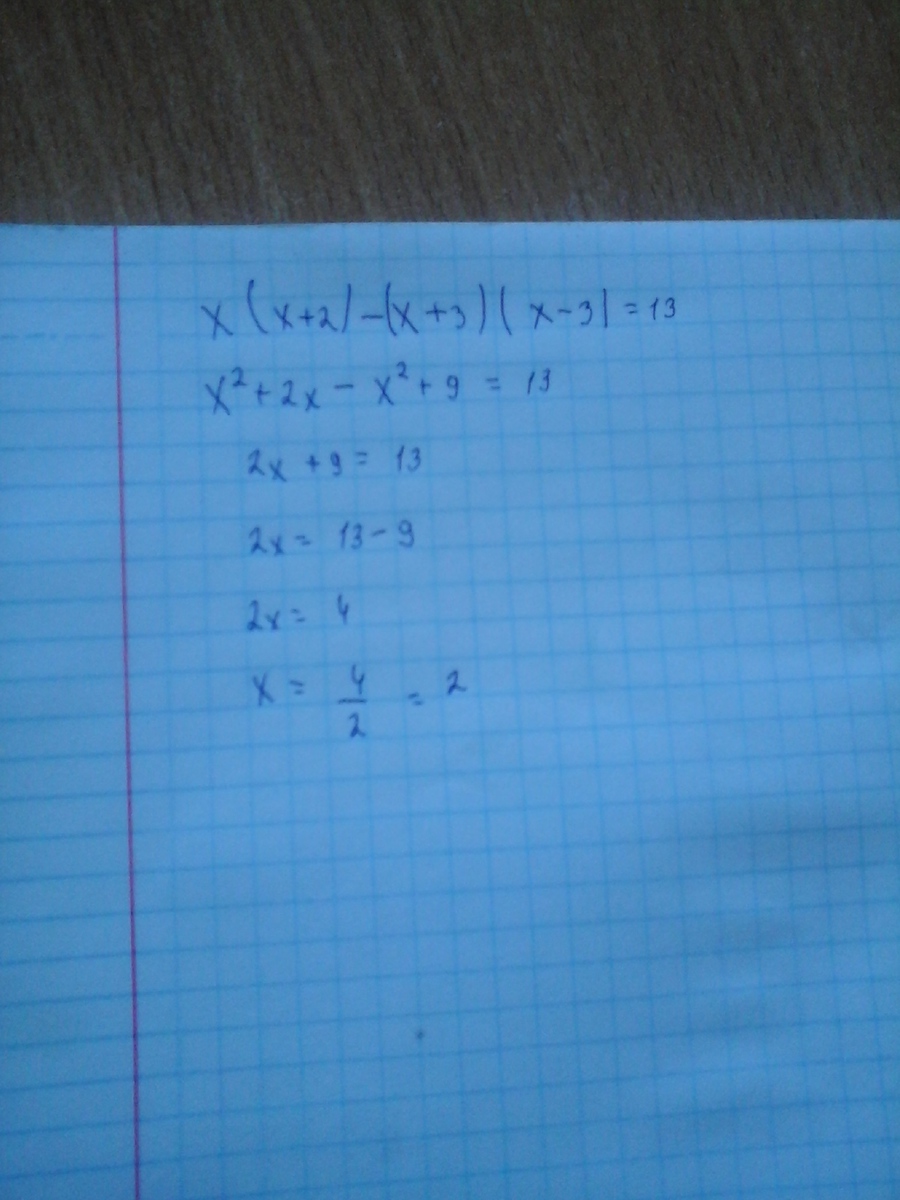 x(x+2)-(x+3)(x-3)=13
x²+2x-x²+9=13
2x+9=13
2x=13-9
2x=4
x=4/2=2